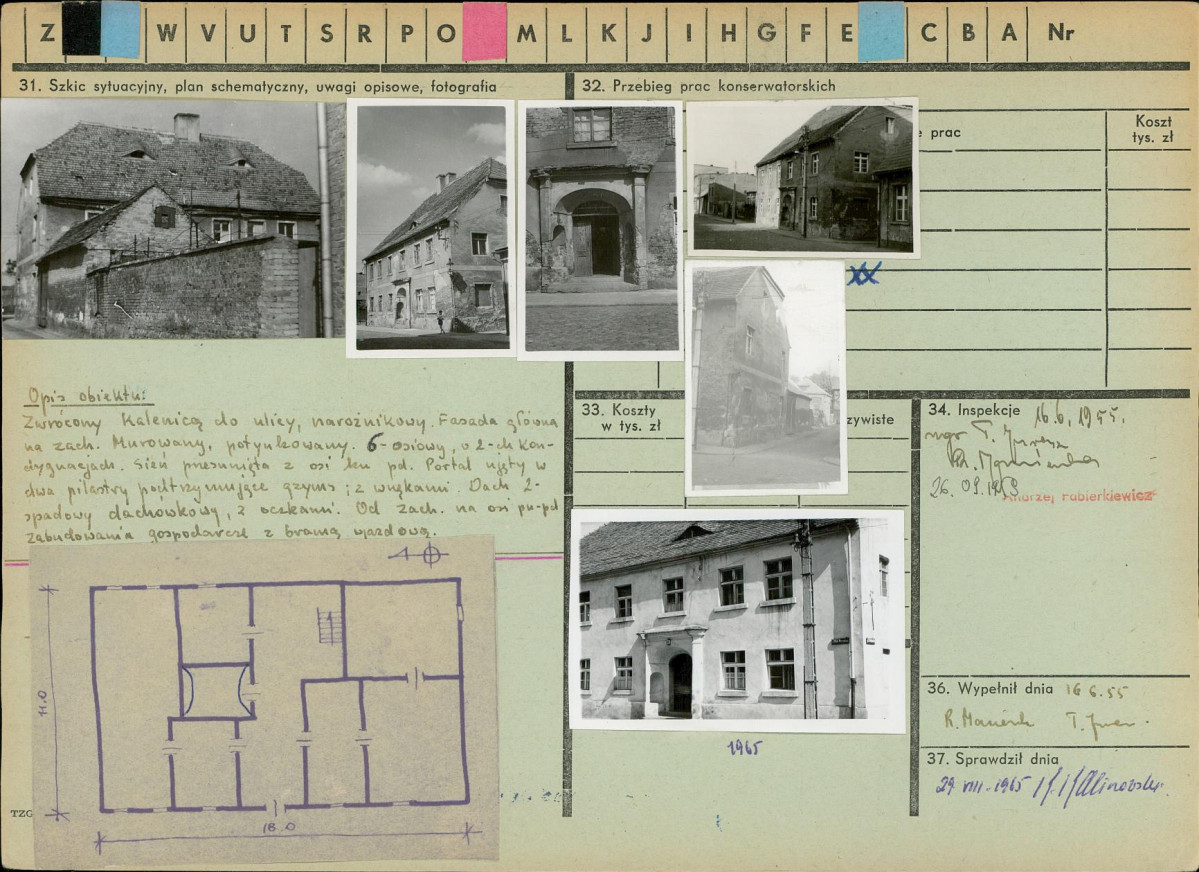 Z W V U T S R P O M L K J I H G F E C B A Nr
31. Szkic sytuacyjny, plan schematyczny, uwagi opisowe, fotografia
32. Przebieg prac konserwatorskich
prac
Koszt
tys. zł
Opis obiektu:
Zwrócony kalenicą do ulicy, narożnikowy. Fasada główna
na zach. Murowany, potynkowany. 6-osiowy, o 2-ch kon-
dygnacjach. Sień przesunięta z osi ku pd. Portal ujęty w
dwa pilastry podtrzymujące gzyms; z wnękami. Dach 2-
spadowy dachówkowy, z oczkami. Od zach. na osi pn-pd
zabudowania gospodarcze z bramą wjazdową.
33. Koszty
w tys. zł
zywiste
34. Inspekcje 16.6.1955.
mgr T.
26. 09. 1959
Andrzej Fabierkiewicz
11.0
18.0
TZG
1965
36. Wypełnił dnia 16 6.55
37. Sprawdził dnia
29 VIII-1965